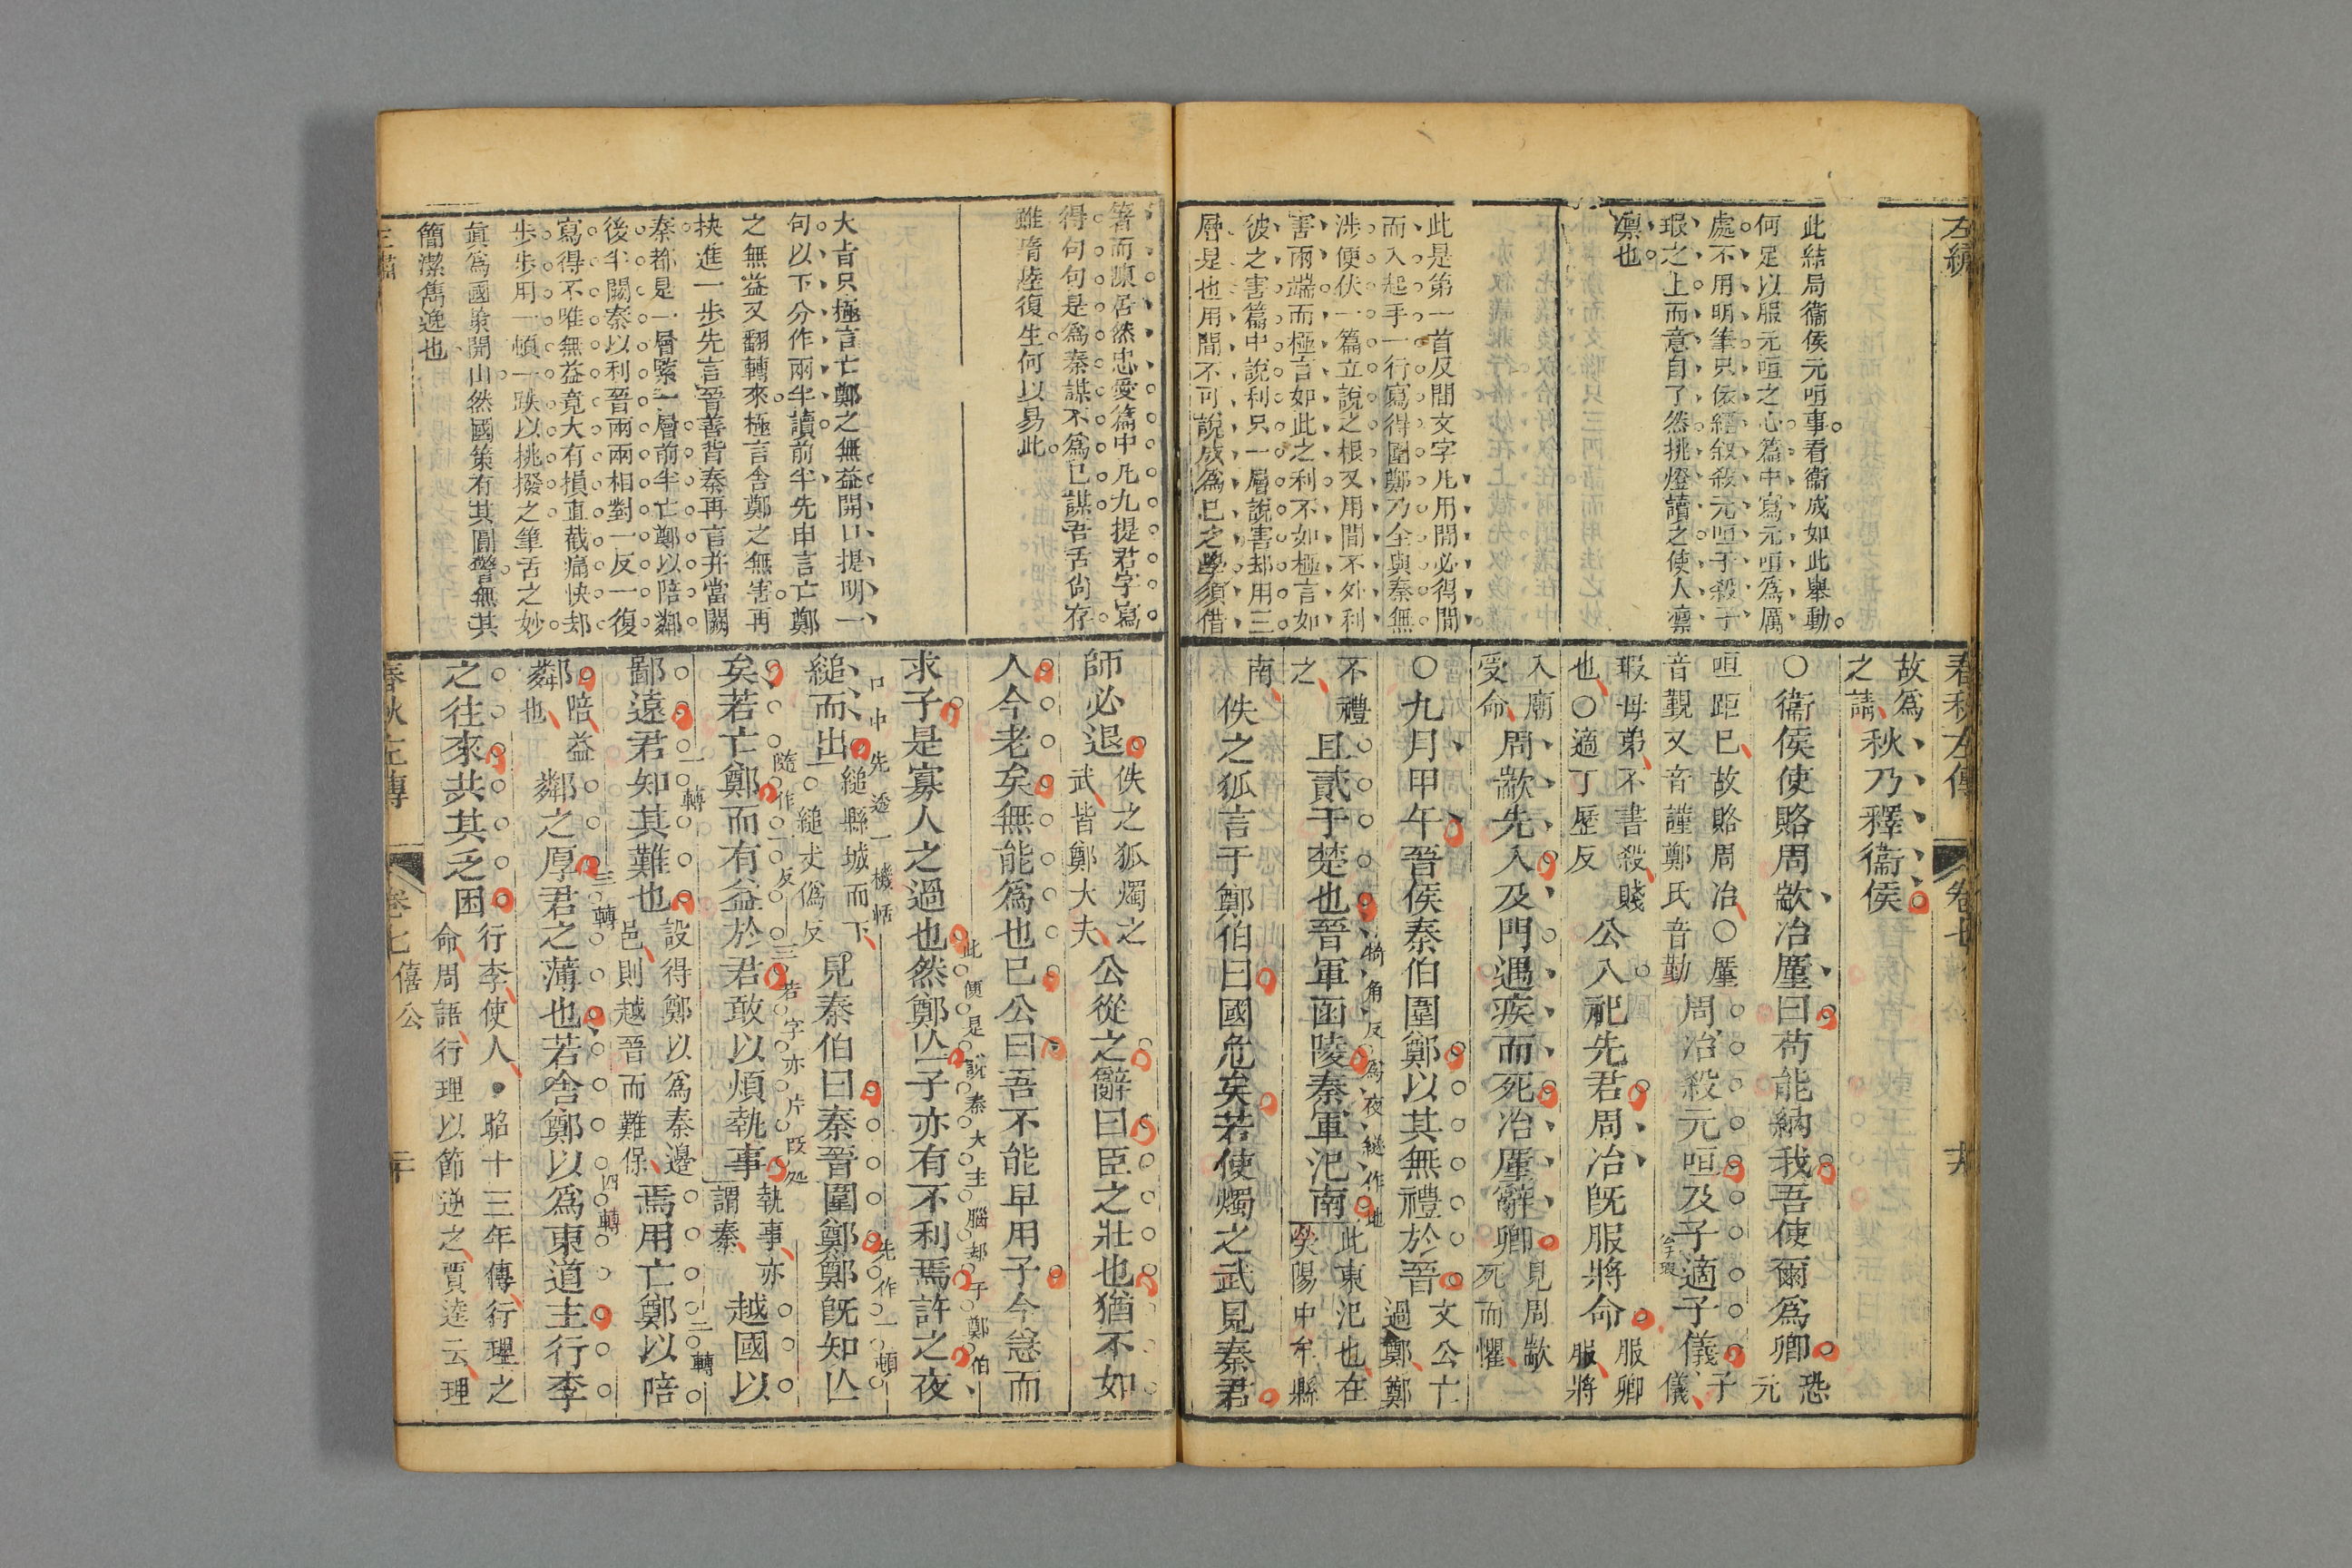 左繡
此結局衞侯元咺事看衞成如此舉動
何足以服元咺之心篇中寫元咺爲厲
處不用明筆只依經叙殺元咺于殺子
瑕之上而意自了然挑燈讀之使人凛
凛也
此是第一首反間文字凡用間必得間
而入起手一行寫得圍鄭乃全與秦無
涉便伏一篇立說之根又用間不外利
害兩端而極言如此之利不如極言如
彼之害篇中說利只一層說害却用三
層是也用間不可說成爲已之學須借
春秋左傳
卷七
十九
故爲
之請
秋乃釋衞侯
○衞侯使賂周歂冶廑曰苟能納我吾使爾爲卿
恐元
咺距已故賂周冶○廑
音覲又音謹鄭氏音勤
周冶殺元咺及子適子儀
子儀
瑕母弟不書殺賤
也○適丁歷反
公入祀先君周冶旣服將命
服卿
服將
入廟
受命
周歂先入及門遇疾而死冶廑辭卿
見周歂
死而懼
○九月甲午晉侯秦伯圍鄭以其無禮於晉
文公亡
過鄭鄭
不禮
之
且貳于楚也晉軍函陵秦軍汜南
此東汜也在
滎陽中牟縣
南
佚之狐言于鄭伯曰國危矣若使燭之武見秦君
箸而顛居然忠愛篇中凡九提君字寫
得句句是爲秦謀不爲已謀吾舌尙存
雖隋陸復生何以易此
大旨只極言亡鄭之無益開口提明一
句以下分作兩半讀前半先申言亡鄭
之無益又翻轉來極言舍鄭之無害再
抉進一步先言晉善背秦再言并當闕
秦都是一層緊一層前半亡鄭以陪鄰
後半闕秦以利晉兩兩相對一反一復
寫得不唯無益竟大有損直截痛快却
步步用一頓一跌以挑撥之筆舌之妙
眞爲國策開山然國策有其圓警無其
簡潔雋逸也
師必退
佚之狐燭之
武皆鄭大夫
公從之辭曰臣之壯也猶不如
人今老矣無能爲也已公曰吾不能早用子今急而
求子是寡人之過也然鄭亾子亦有不利焉許之夜
此便是說秦大主腦却于鄭伯
口中先透一機恬
縋而出
縋縣城而下
○縋丈僞反
見秦伯曰秦晉圍鄭鄭旣知亾
先作一頓
矣若亡鄭而有益於君敢以煩執事
執事亦
謂秦
越國以
隨作一反
鄙遠君知其難也
設得鄭以爲秦邊
邑則越晉而難保
焉用亡鄭以陪
一轉
二轉
鄰
陪益
也
鄰之厚君之薄也若舍鄭以爲東道主行李
三轉
四轉
之往來共其乏困
行李使人●昭十三年傳行理之
命周語行理以節逆之賈逵云理
春秋左傳
卷七
僖公
二十